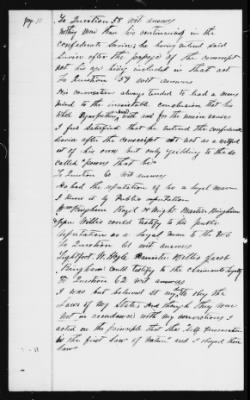 To Question 58 wit answers
nothing more than his continuing in the
confederate service, he having entered said
service after the passage of the conscript
act his age being included in that act
To Question 59 wit answers
His conversation always tended to lead a man's
mind to the irresistible conclusion that his
was with and for the union cause
I feel satisfied that he entered the confederate
service after the conscript act not as a
act of his own but only yielding to the so
called "powers that be"
To Question 60 wit answers
He had the reputation of being a loyal man
I know it by Public reputation
Kingham Hoyl W Wright Bingham
Willis could testify to his public
reputation as a loyal man to the U.S.
To Question 61 wit answers
Lightfoot W. Hoyle Willis Jacob
Bingham could testify to the claimants loyalty
To Question 62 wit answers
I was but believed it my duty to obey the
laws of my State and though they were
not in accordance with my convictions I
acted on the principle that the "Self Preservation
is the first law of nature" and I obeyed their
law